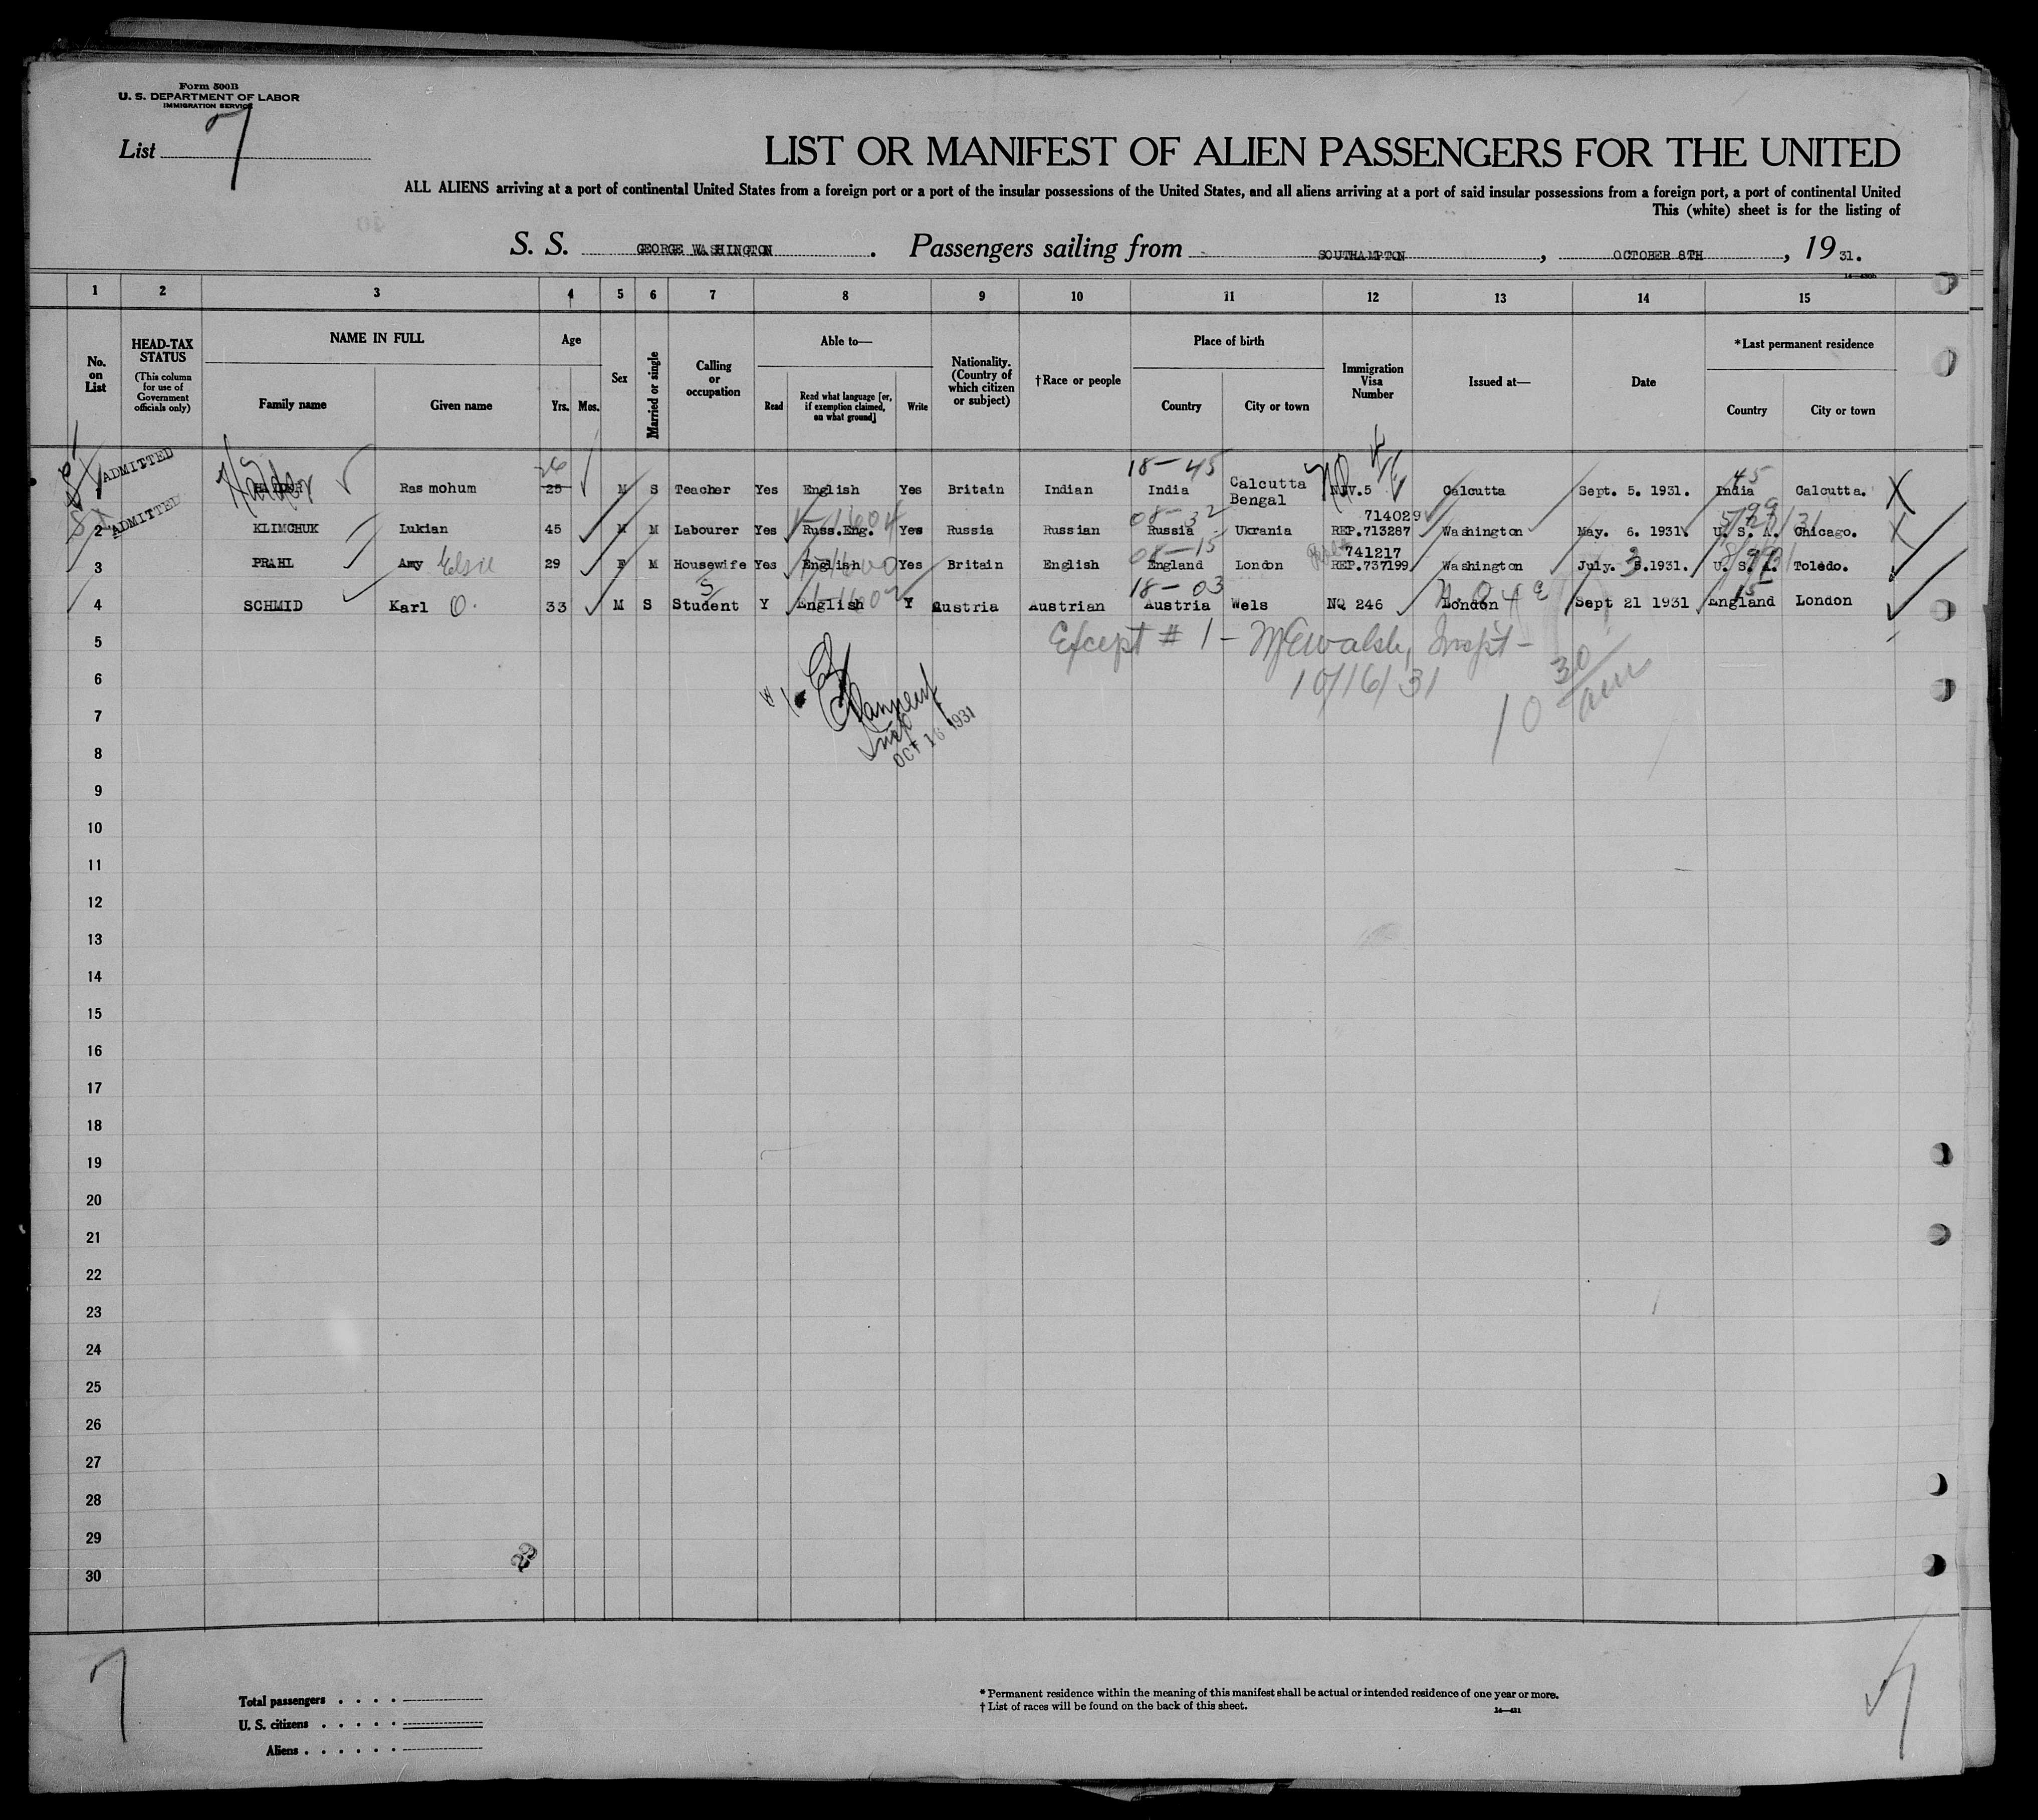 Form 500B
U. S. DEPARTMENT OF LABOR
IMMIGRATION SERVICE
List 7
LIST OR MANIFEST OF ALIEN PASSENGERS FOR THE UNITED
ALL ALIENS arriving at a port of continental United States from a foreign port or a port of the insular possessions of the United States, and all aliens arriving at a port of said insular possessions from a foreign port, a port of continental United
This (white) sheet is for the listing of
S. S. GEORGE WASHINGTON . Passengers sailing from SOUTHAMPTON , OCTOBER 8TH , 19 31.
1 2 3 4 5 6 7 8 9 10 11 12 13 14 15
No. on List
HEAD-TAX STATUS (This column for use of Government officials only)
NAME IN FULL
Family name Given name
Age
Yrs. Mos.
Sex
Married or single
Calling or occupation
Able to—
Read
Read what language [or, if exemption claimed, on what ground]
Write
Nationality. (Country of which citizen or subject)
†Race or people
Place of birth
Country City or town
Immigration Visa Number
Issued at—
Date
*Last permanent residence
Country City or town
ADMITTED 26 18-45 45
1 Halder Ras mohum 25 M S Teacher Yes English Yes Britain Indian India Calcutta Bengal NQV.5 Calcutta Sept. 5. 1931. India Calcutta. X
ADMITTED 08-32 714029 99
2 KLIMCHUK Lukian 45 M M Labourer Yes Russ.Eng. Yes Russia Russian Russia Ukrania REP.713287 Washington May. 6. 1931. U. S. A. Chicago. X
08-15 741217
3 PRAHL Amy Elsie 29 F M Housewife Yes English Yes Britain English England London REP.737199 Washington July. 3.1931. U. S. A. Toledo.
S 18-03 15
4 SCHMID Karl O. 33 M S Student Y English Y Austria Austrian Austria Wels NQ 246 London Sept 21 1931 England London
5
Except # 1 - McEwalsh, Inspt-
6
10/16/31
10 30/am
7
Insp
OCT 16 1931
8
9
10
11
12
13
14
15
16
17
18
19
20
21
22
23
24
25
26
27
28
29
30
7
Total passengers . . . .
U. S. citizens . . . . .
Aliens . . . . . .
* Permanent residence within the meaning of this manifest shall be actual or intended residence of one year or more.
† List of races will be found on the back of this sheet.
14—431
7